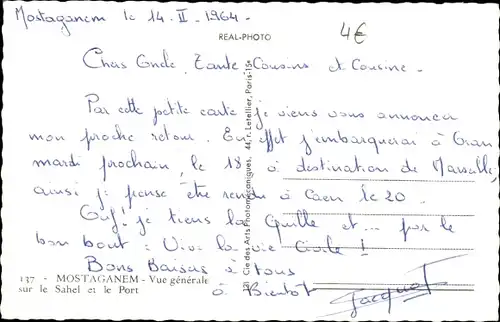 Mostaganem le 14. II. 1964.
4€
REAL-PHOTO
Chers Oncle, Tante, Cousins et Cousine.
Par cette petite carte je viens vous annoncer
mon proche retour. En effet j'embarquerai à Oran
mardi prochain, le 18 à destination de Marseille,
ainsi je pense être rendu à Caen le 20.
Ouf! je tiens la Quille et... par le
bon bout : Vive la vie Civile !
Bons Baisers à tous
à Bientôt
Jacquot
137 - MOSTAGANEM - Vue générale
sur le Sahel et le Port
Cie des Arts Photomécaniques, 44, r. Letellier, Paris-15e